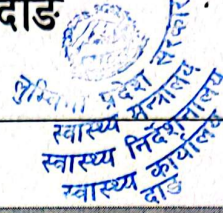 दाङ
लुम्बिनी प्रदेश सरकार
स्वास्थ्य मन्त्रालय
स्वास्थ्य निर्देशनालय
स्वास्थ्य कार्यालय
दाङ